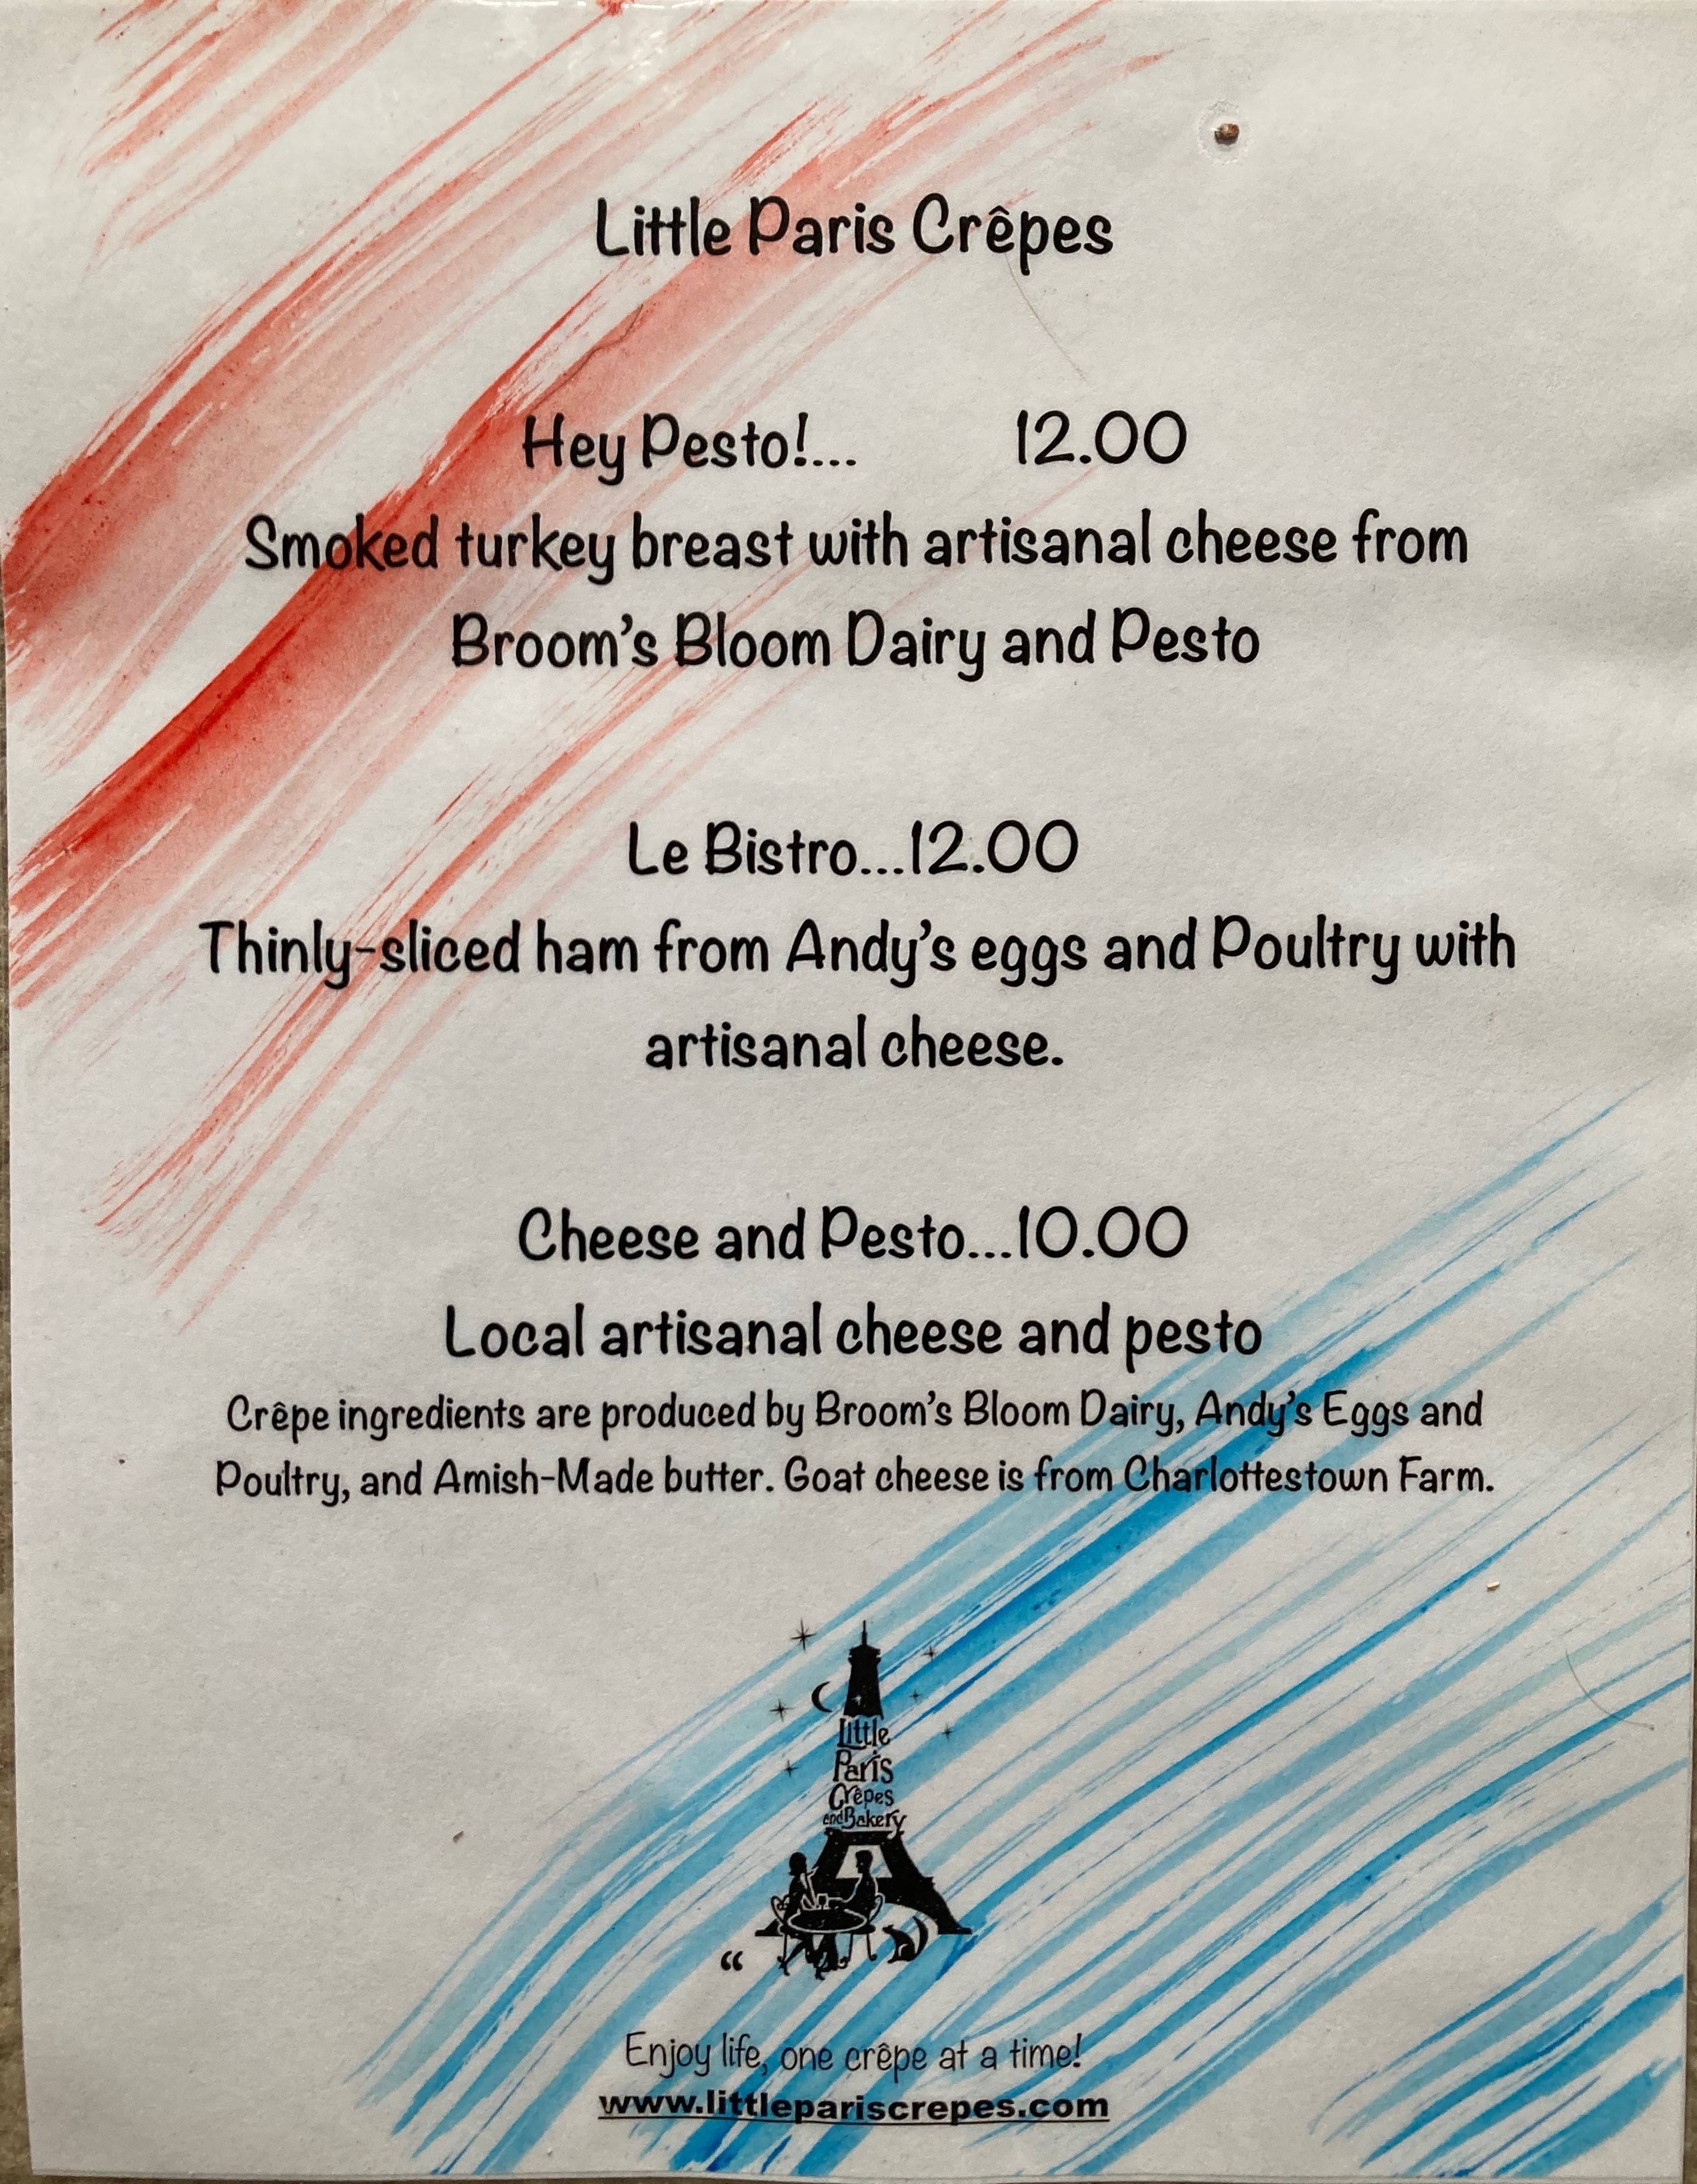 Little Paris Crêpes
Hey Pesto!... 12.00
Smoked turkey breast with artisanal cheese from
Broom's Bloom Dairy and Pesto
Le Bistro...12.00
Thinly-sliced ham from Andy's eggs and Poultry with
artisanal cheese.
Cheese and Pesto...10.00
Local artisanal cheese and pesto
Crêpe ingredients are produced by Broom's Bloom Dairy, Andy's Eggs and
Poultry, and Amish-Made butter. Goat cheese is from Charlottestown Farm.
Little
Paris
Crêpes
and Bakery
“
Enjoy life, one crêpe at a time!
www.littlepariscrepes.com